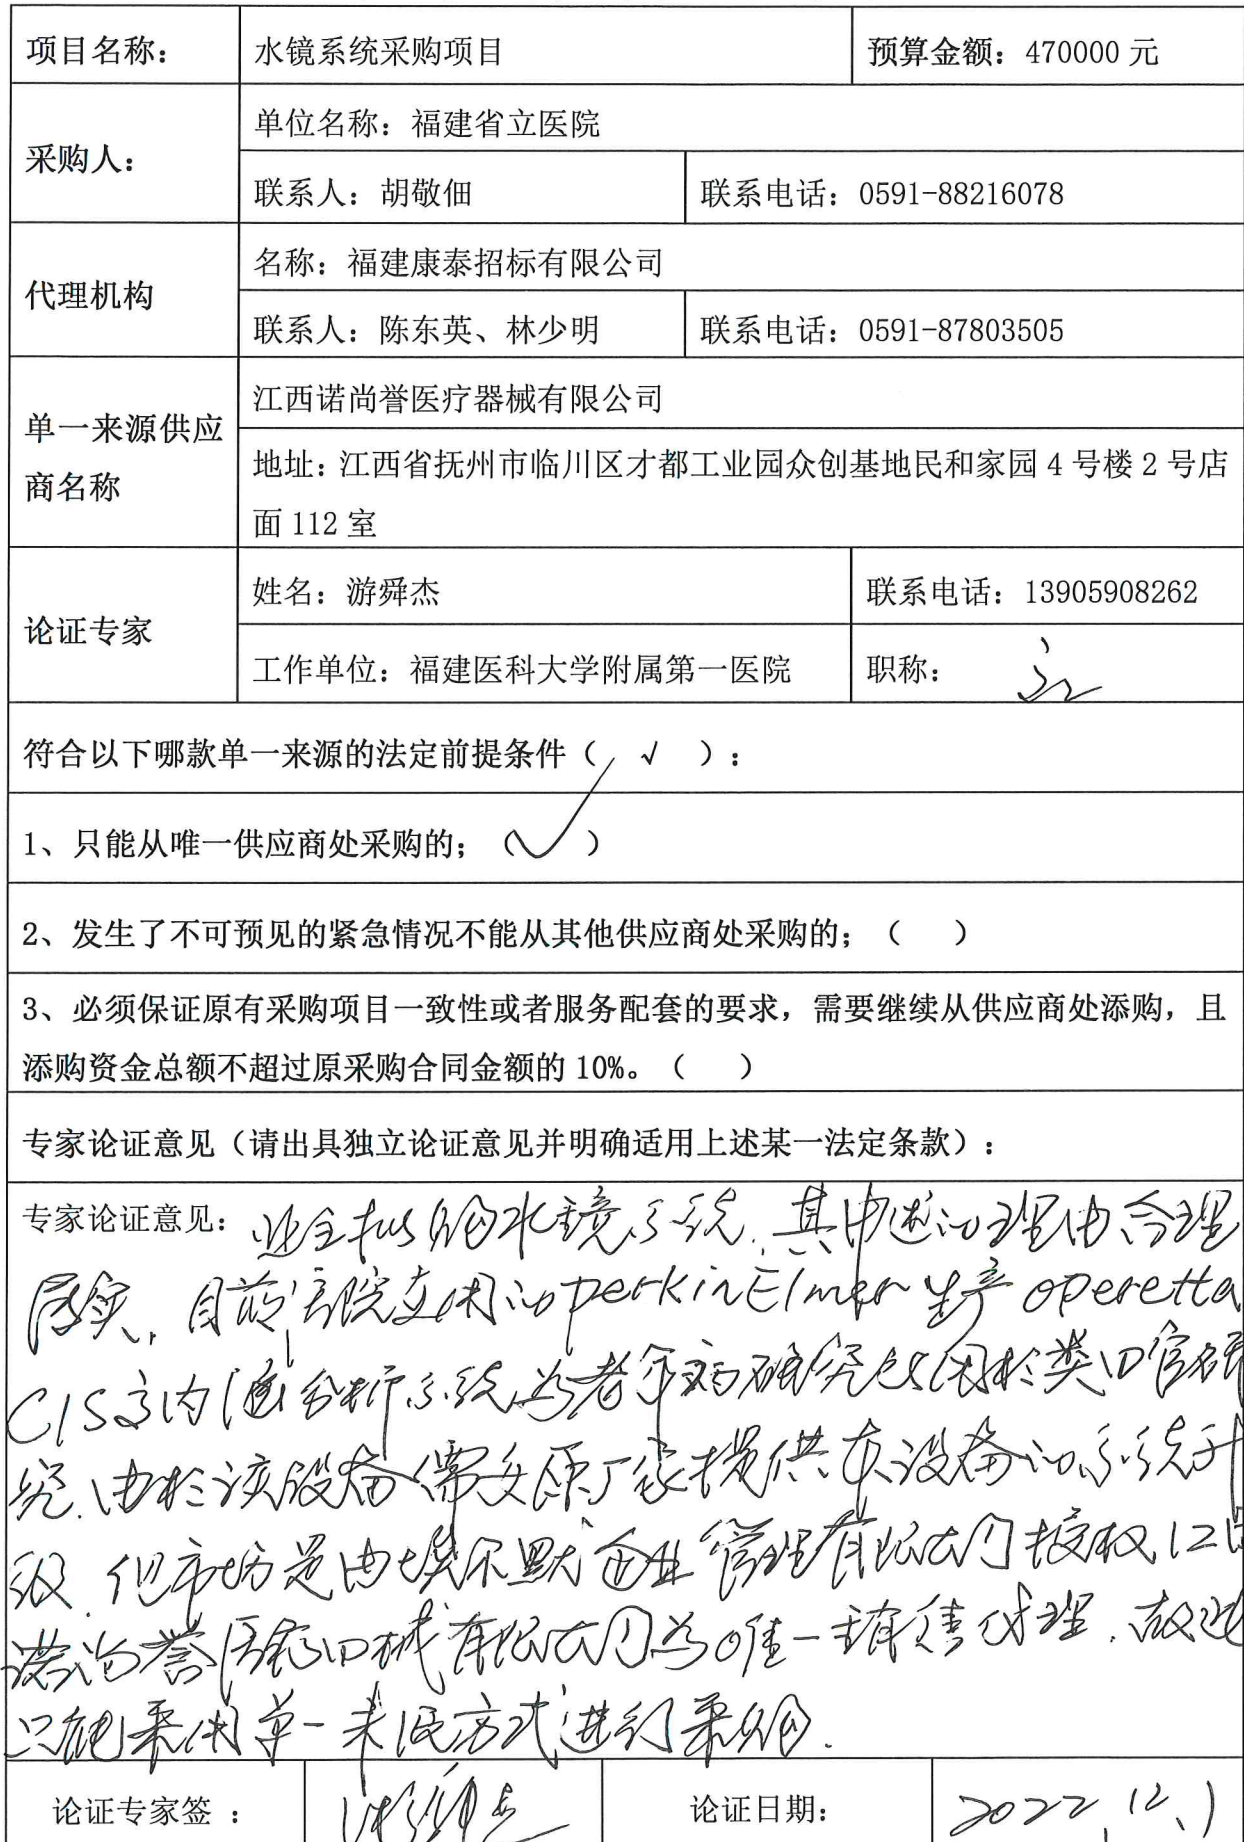 项目名称：
水镜系统采购项目
预算金额：470000 元
采购人：
单位名称：福建省立医院
联系人：胡敬佃
联系电话：0591-88216078
代理机构
名称：福建康泰招标有限公司
联系人：陈东英、林少明
联系电话：0591-87803505
单一来源供应
商名称
江西诺尚誉医疗器械有限公司
地址：江西省抚州市临川区才都工业园众创基地民和家园 4 号楼 2 号店
面 112 室
论证专家
姓名：游舜杰
联系电话：13905908262
工作单位：福建医科大学附属第一医院
职称：
符合以下哪款单一来源的法定前提条件（ √ ）：
1、只能从唯一供应商处采购的；（✓）
2、发生了不可预见的紧急情况不能从其他供应商处采购的；（ ）
3、必须保证原有采购项目一致性或者服务配套的要求，需要继续从供应商处添购，且
添购资金总额不超过原采购合同金额的 10%。（ ）
专家论证意见（请出具独立论证意见并明确适用上述某一法定条款）：
专家论证意见：业主拟购水镜系统，其申述的理由合理
属实，目前医院在用的perkinElmer生产operetta
CLS高内涵分析系统为老年病研究所用于类器官研
究，由于该设备需要原厂家提供本设备的系统升
级，但市场是由埃尔默企业管理有限公司授权江西
诺尚誉医疗器械有限公司为唯一销售代理，故
只能采用单一来源方式进行采购．
论证专家签 ：
游舜杰
论证日期：
2022.12.1